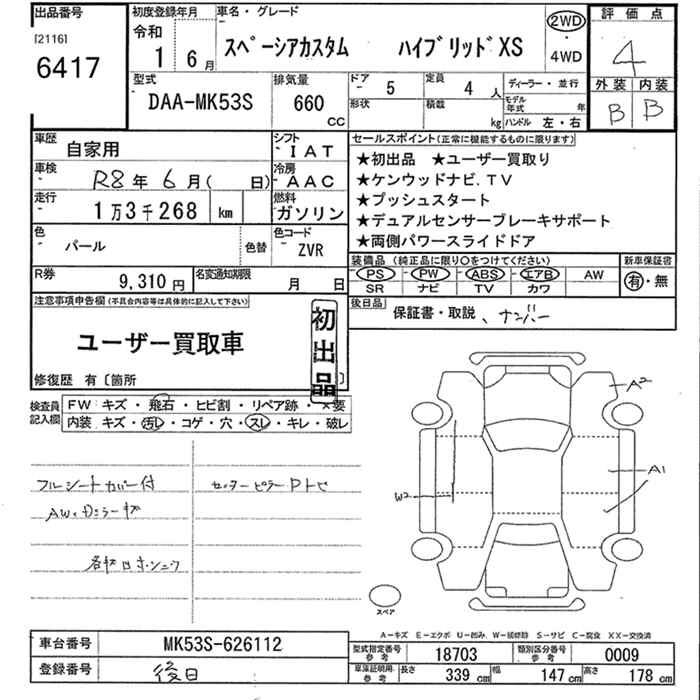 出品番号
[2116]
6417
初度登録年月
令和
1 6月
車名・グレード
スペーシアカスタム ハイブリッドXS
2WD
・
4WD
評価点
4
外装 内装
B B
型式
DAA-MK53S
排気量
660
CC
ドア
5
定員
4人
形状
積載
kg
ディーラー・並行
モデル年式 年
ハンドル 左・右
車歴
自家用
シフト
IAT
車検
R8年 6月( 日)
冷房
AAC
走行
1万3千268 km
燃料
ガソリン
色
パール
色替
色コード
ZVR
R券
9,310円
名変通知期限
月 日
セールスポイント(正常に機能するものに限ります)
★初出品 ★ユーザー買取り
★ケンウッドナビ.TV
★プッシュスタート
★デュアルセンサーブレーキサポート
★両側パワースライドドア
装備品(純正品に限り○をつけてください)
PS PW ABS エアB AW
SR ナビ TV カワ
新車保証書
有・無
後日品
保証書・取説、ナンバー
注意事項申告欄(不具合内容等は具体的に記入して下さい)
ユーザー買取車
初出品
修復歴 有〔箇所 〕
検査員記入欄
FW キズ・飛石・ヒビ割・リペア跡・×要
内装 キズ・汚レ・コゲ・穴・スレ・キレ・破レ
フルシートカバー付
センターピラーPトビ
A2
A1
W2
スペア
A-キズ E-エクボ U-凹み W-補修跡 S-サビ C-腐食 XX-交換済
車台番号
MK53S-626112
登録番号
後日
型式指定番号
参考
18703
類別区分番号
参考
0009
車庫証明用
参考
長さ 339cm
幅 147cm
高さ 178cm